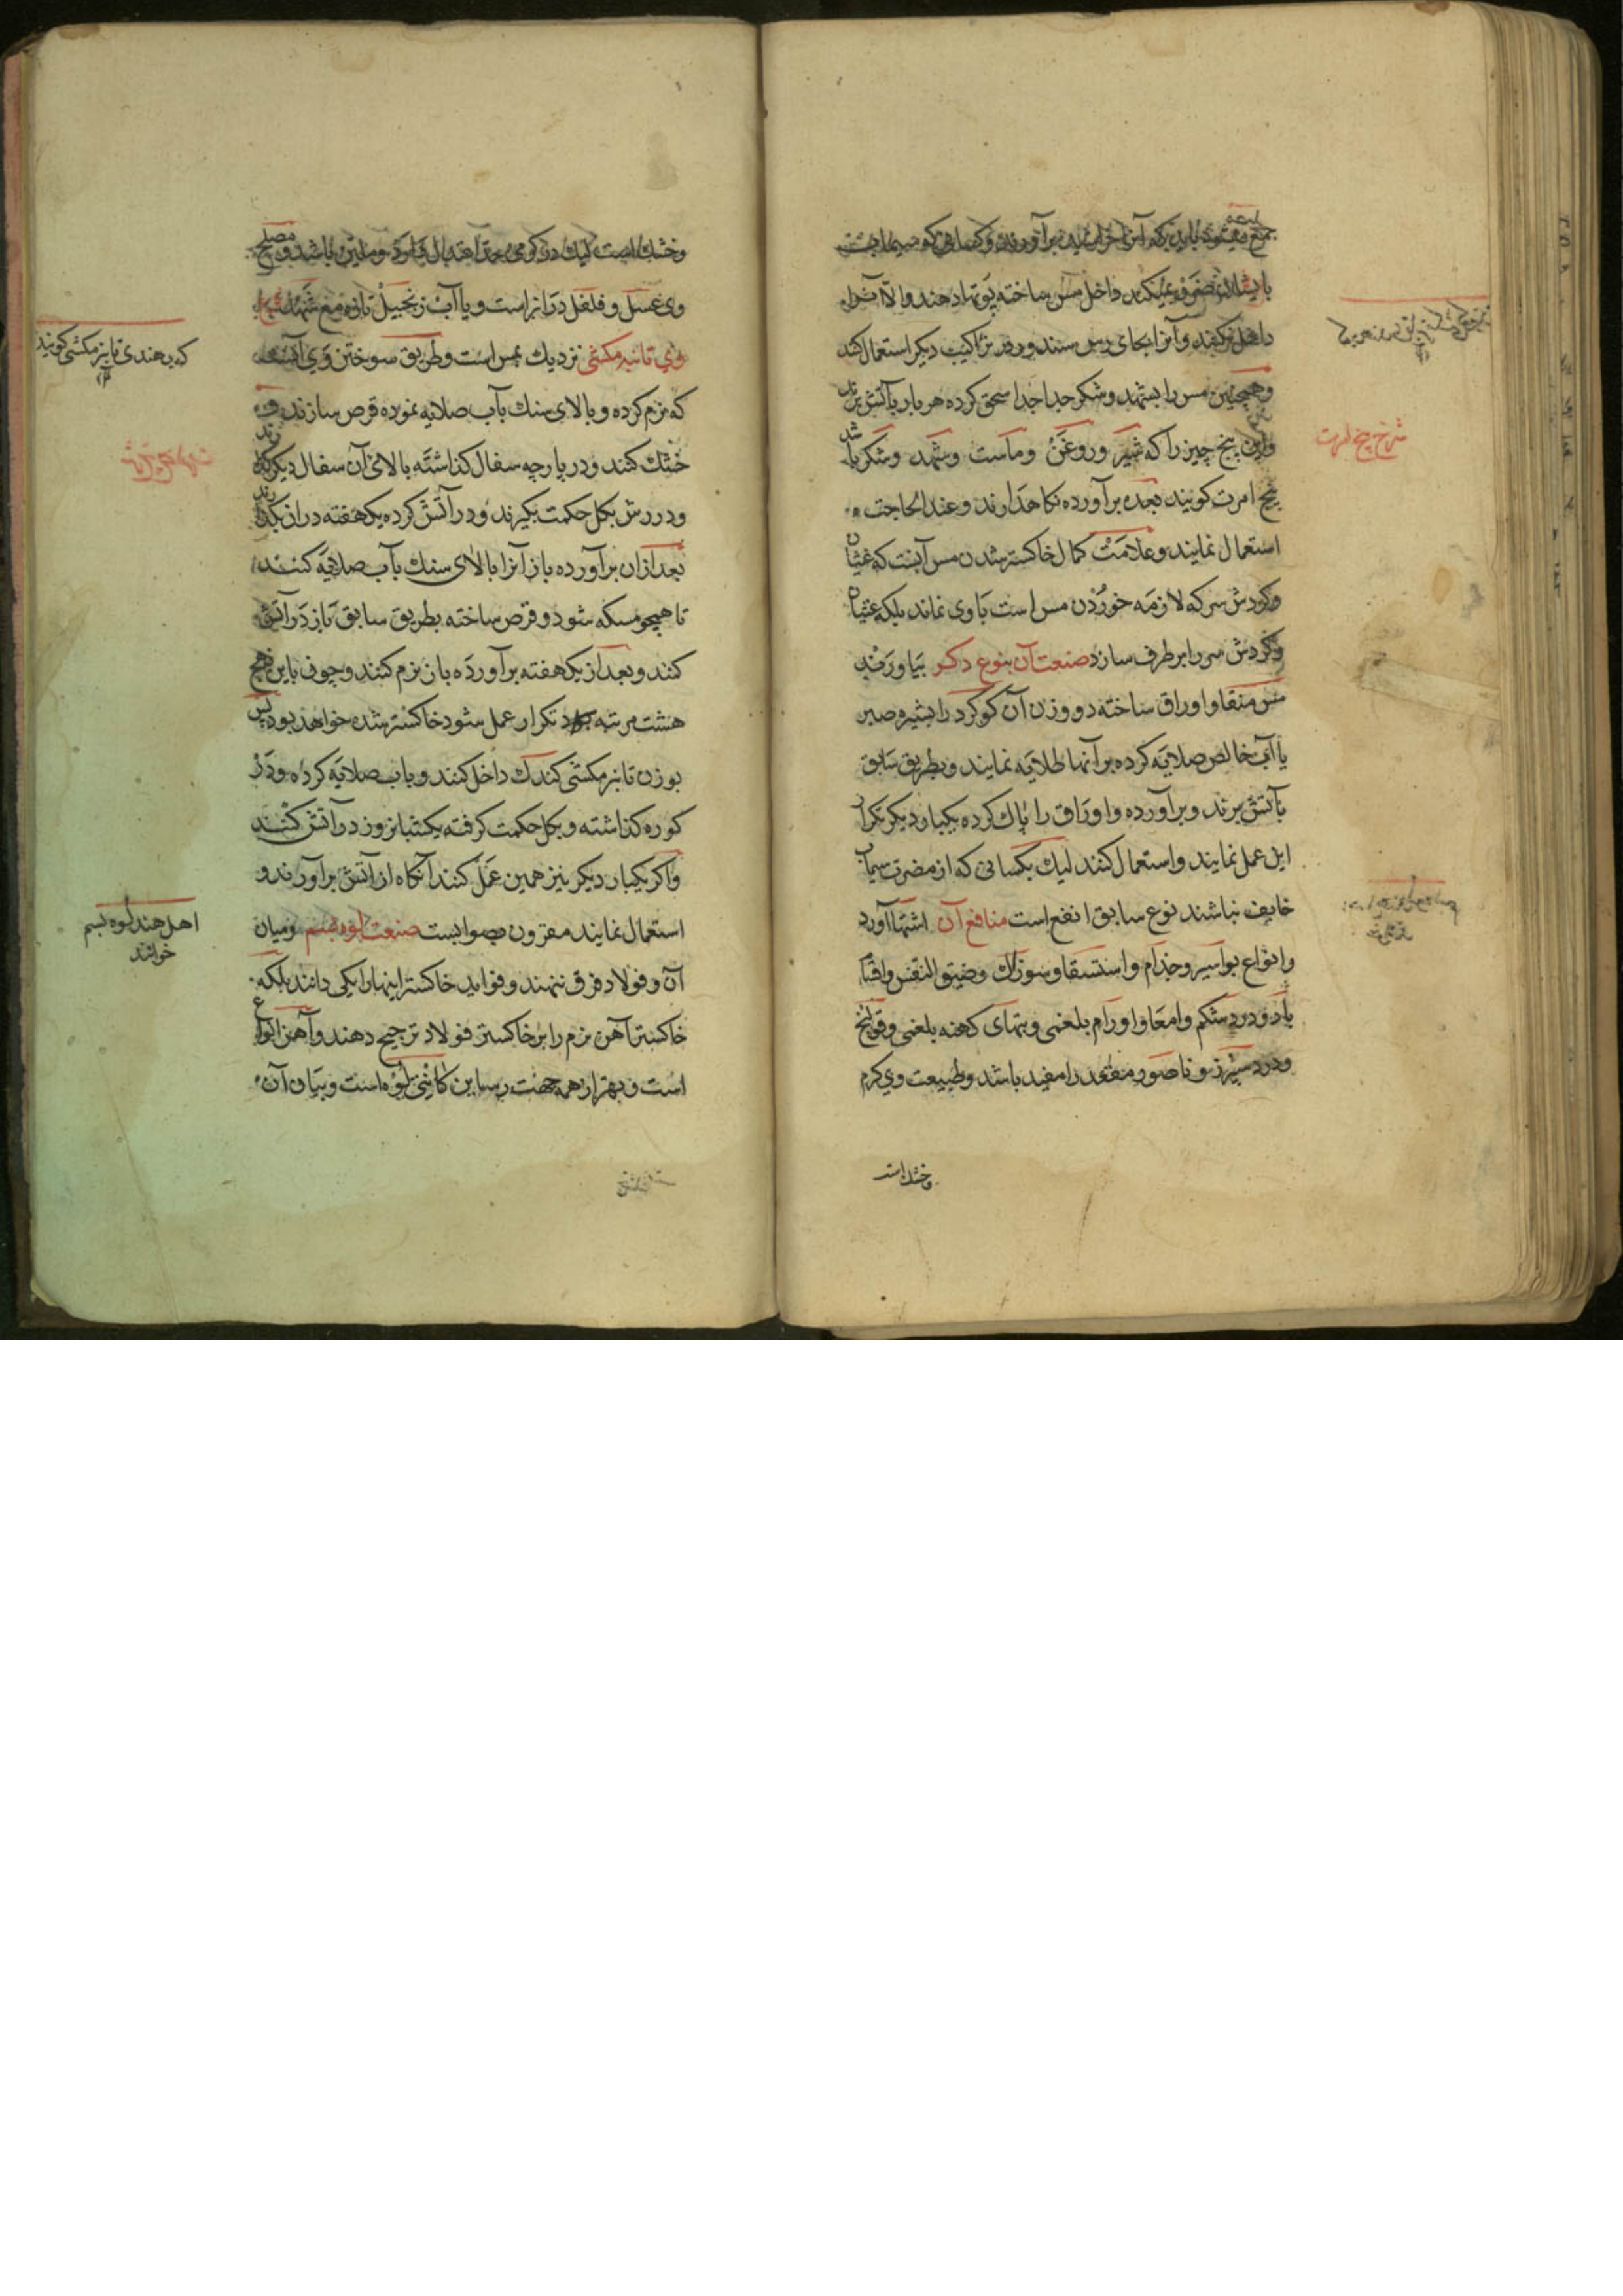 جمع میشود باید که آنرا خراشیده برآورند و کسانی که سیماب
باایشان ضرر نمیکند داخل مس ساخته پوتها دهند والا آنرا
داخل نکنند وآنرا بجای رس سیندور در تراکیب دیگر استعمال کنند
وهمچنین مس را بشهد وشکر جدا جدا سحق کرده هر بار بآتش برند
واین پنج چیز را که شیر وروغن وماست وشهد وشکر باشد
پنج امرت کویند بعده برآورده نکاهدارند وعند الحاجت
استعمال نمایند وعلامت کمال خاکستر شدن مس آنست که غثیان
وکردش سر که لازمه خوردن مس است باوی نماند بلکه غثیان
وکردش سر را برطرف سازد صنعت آن بنوع دکر بیاورند
مس منقا واوراق ساخته دو وزن آن کوکرد را بشیره صبر
یا آب خالص صلایه کرده برآنها طلایه نمایند وبطریق سابق
بآتش برند وبرآورده واوراق را پاک کرده یکبار دیکر تکرار
این عمل نمایند واستعمال کنند لیک بکسانی که از مضرت سیماب
خایف نباشند نوع سابق انفع است منافع آن اشتها آورد
وانواع بواسیر وجذام واستسقا وسوزاک وضیق النفس
باد ودرد شکم وامعا واورام بلغمی وتبهای کهنه بلغمی وقولنج
ودرد سپرز وناصور مقعد را مفید باشد وطبیعت وی کرم
وخشک است
شرح پنج امرت
وخشک است لیک در کرمی باشد و مصلح
وی عسل وفلفل دراز است ویا آب زنجبیل تازه مع شهد
وی تانبر مکشی نزدیک بمس است وطریق سوختن وی آنست
که نرم کرده وبالای سنک بآب صلایه نموده قرص سازند و
خشک کنند ودر پارچه سفال کذاشته بالای آن سفال دیکر کذارند
ودررش بکل حکمت بکیرند ودر آتش کرده یک هفته دران بکذارند
بعد ازان برآورده باز آنرا بالای سنک بآب صلایه کنند
تا همچو مسکه شود وقرص ساخته بطریق سابق باز در آتش
کنند وبعد از یک هفته برآورده باز نرم کنند وچون باین نهج
هشت مرتبه تکرار عمل شود خاکستر شده خواهد بود پس
بوزن تانبر مکشی کندک داخل کنند وبآب صلایه کرده ودر
کوره کذاشته وبکل حکمت کرفته یکشبانروز در آتش کنند
واکر یکبار دیکر نیز همین عمل کنند آنکاه از آتش برآورند و
استعمال نمایند مقرون بصوابست صنعت لوه بسم ومیان
آن وفولاد فرق ننهند وفواید خاکستر اینها را یکی دانند بلکه
خاکستر آهن نرم را بر خاکستر فولاد ترجیح دهند وآهن انواع
است وبهتر از همه جهت رساین کانتی لوه است وبیان آن
که بهندی تانبر مکشی کویند
اهل هند لوه بسم
خوانند